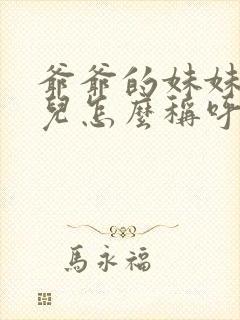 爺爺的妹妹
兒怎麼稱呼
馬永福